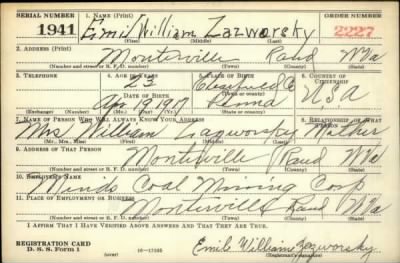 SERIAL NUMBER 1. NAME (Print) ORDER NUMBER
1941 Emil William Lazworsky 2227
(First) (Middle) (Last)
2. ADDRESS (Print)
Monterville Rand WVa
(Number and street or R. F. D. number) (Town) (County) (State)
3. TELEPHONE 4. AGE IN YEARS 5. PLACE OF BIRTH 6. COUNTRY OF CITIZENSHIP
23 Clearfield Co
DATE OF BIRTH (Town or county)
Apr 19 1917 Penna U.S.A
(Exchange) (Number) (Mo.) (Day) (Yr.) (State or country)
7. NAME OF PERSON WHO WILL ALWAYS KNOW YOUR ADDRESS 8. RELATIONSHIP OF THAT PERSON
Mrs William Lazworsky Mother
(Mr., Mrs., Miss) (First) (Middle) (Last)
9. ADDRESS OF THAT PERSON
Monterville Rand WVa
(Number and street or R. F. D. number) (Town) (County) (State)
10. EMPLOYER'S NAME
Minds Coal Mining Corp
11. PLACE OF EMPLOYMENT OR BUSINESS
Monterville Rand WVa
(Number and street or R. F. D. number) (Town) (County) (State)
I AFFIRM THAT I HAVE VERIFIED ABOVE ANSWERS AND THAT THEY ARE TRUE.
REGISTRATION CARD
D. S. S. Form 1 (over) 16—17105
Emile William Lazworsky
(Registrant's signature)